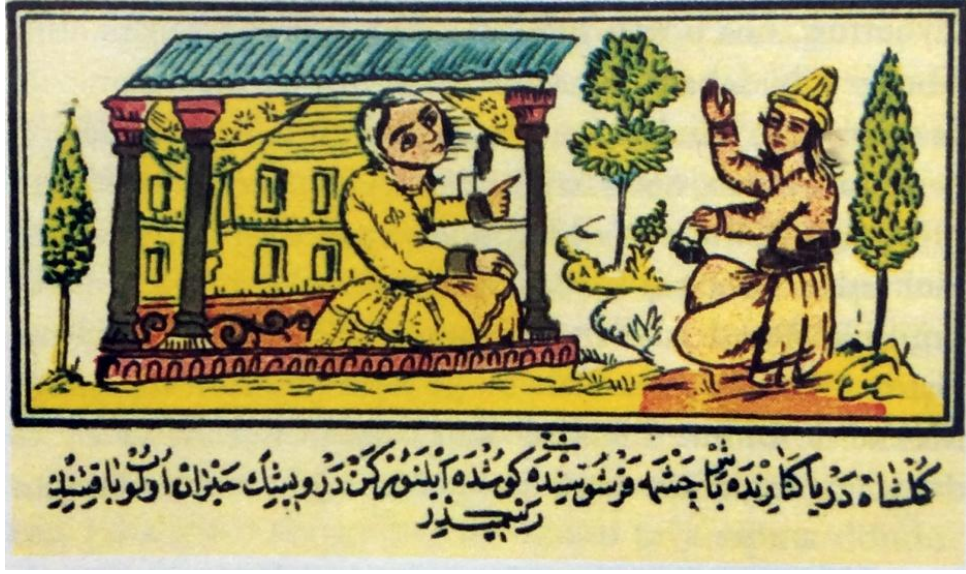 كلشاه دريا كنارنده چشمه قرشوسنده كوشده ايلنوركن درويشك حيران اولوب
رسميدر